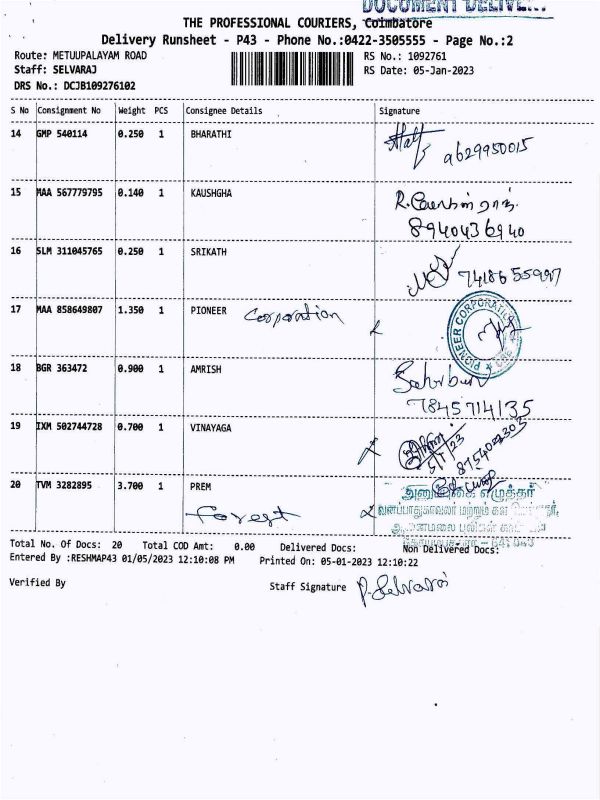 DOCUMENT DELIVE
THE PROFESSIONAL COURIERS, Coimbatore
Delivery Runsheet - P43 - Phone No.:0422-3505555 - Page No.:2
Route: METUUPALAYAM ROAD RS No.: 1092761
Staff: SELVARAJ RS Date: 05-Jan-2023
DRS No.: DCJB109276102
S No Consignment No Weight PCS Consignee Details Signature
14 GMP 540114 0.250 1 BHARATHI 9629950015
15 MAA 567779795 0.140 1 KAUSHGHA R.
8940436940
16 SLM 311045765 0.250 1 SRIKATH 7418655997
17 MAA 858649807 1.350 1 PIONEER Corporation PIONEER CORPORATION
18 BGR 363472 0.900 1 AMRISH
7845714135
19 IXM 502744728 0.700 1 VINAYAGA 5/1/23 8754022303
20 TVM 3282895 3.700 1 PREM
Forest
வனப்பாதுகாவலர் மற்றும் கள
Total No. Of Docs: 20 Total COD Amt: 0.00 Delivered Docs: Non Delivered Docs:
Entered By :RESHMAP43 01/05/2023 12:10:08 PM Printed On: 05-01-2023 12:10:22
Verified By Staff Signature P. Selvaraj